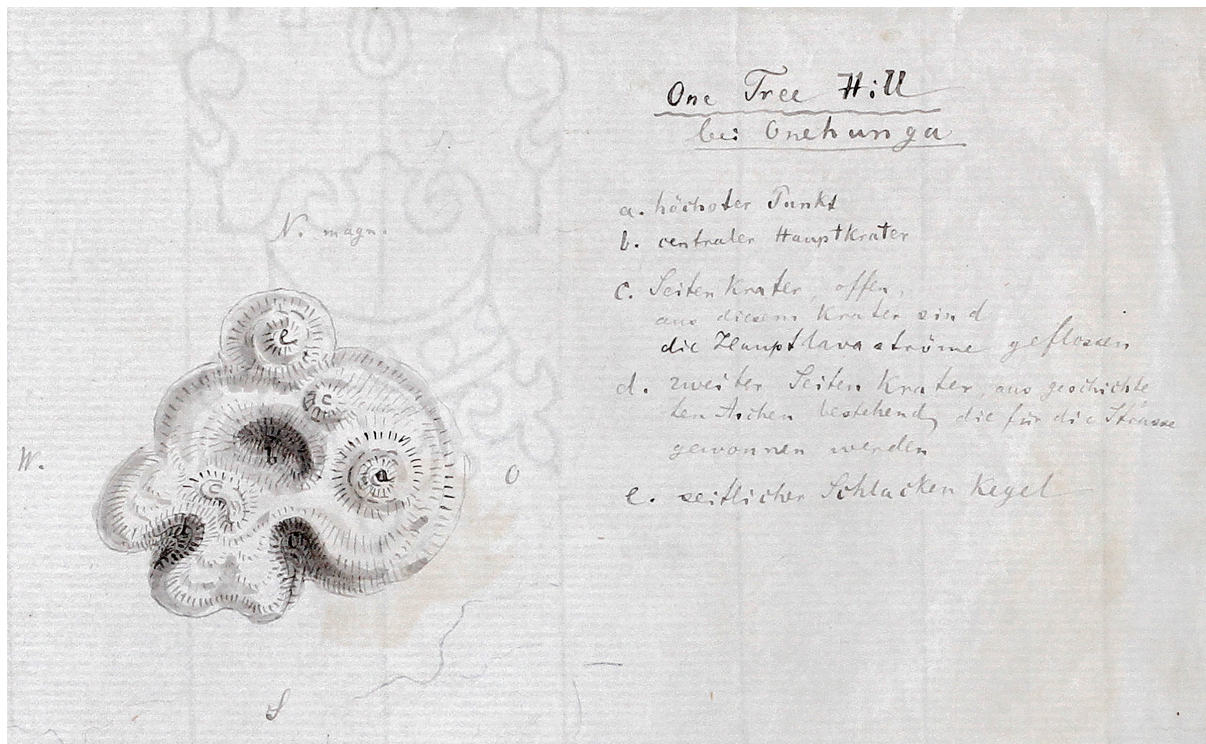 One Tree Hill
bei Onehunga
N. magn.
a. höchster Punkt
b. centraler Hauptkrater
c. Seiten Krater offen,
aus diesem Krater sind
die Hauptlavaströme geflossen
d. zweiter Seiten Krater, aus geschichte
ten Aschen bestehend, die für die Strasse
gewonnen werden
e. seitlicher Schlacken Kegel
e
c
b
a
W.
O
c
d
c
S